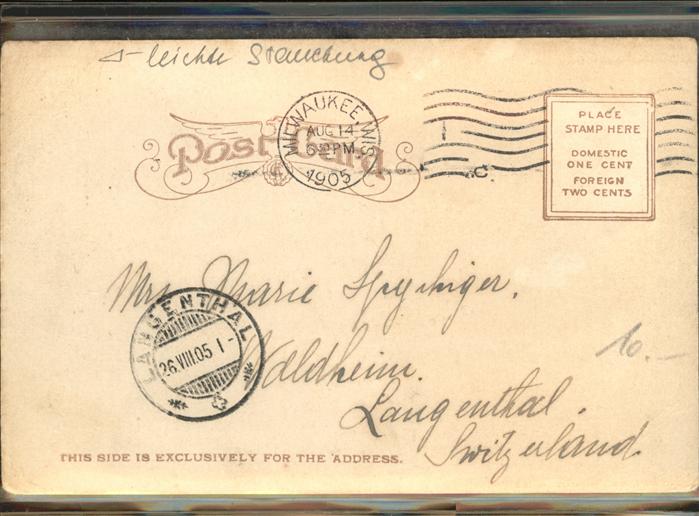 leichte Stauchung
Post Card
MILWAUKEE, WIS.
AUG 14
6 30 PM
1905
C
PLACE
STAMP HERE
DOMESTIC
ONE CENT
FOREIGN
TWO CENTS
Mrs. Marie Spychiger.
Waldheim.
Langenthal.
Switzerland.
LANGENTHAL
26.VIII.05 I-
10.-
THIS SIDE IS EXCLUSIVELY FOR THE ADDRESS.